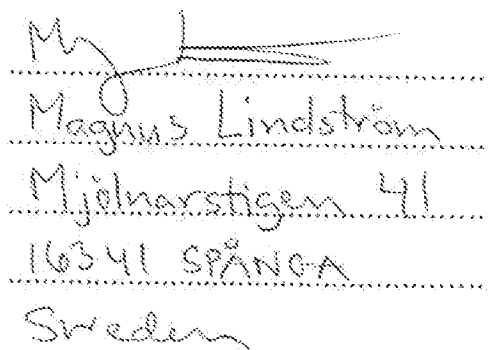 Magnus Lindström
Mjölnarstigen 41
16341 SPÅNGA
Sweden